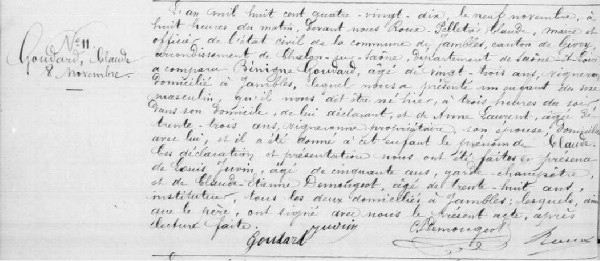 N° 11
Goudard, Claude
8 Novembre.
L'an mil huit cent quatre-vingt-dix, le neuf novembre, à
huit heures du matin, devant nous Roux-Pellety Claude, maire et
officier de l'état civil de la commune de Jambles, canton de Givry,
arrondissement de Chalon-sur-Saône, département de Saône-et-Loire
a comparu Bénigne Goudard, âgé de vingt-trois ans, vigneron,
domicilié à Jambles, lequel nous a présenté un enfant du sexe
masculin, qu'il nous a dit être né hier, à trois heures du soir,
dans son domicile, de lui déclarant, et d'Anne Laurent, âgée de
trente-trois ans, vigneronne propriétaire, son épouse, domiciliée
avec lui, et il a été donné à cet enfant le prénom de Claude.
Ces déclaration et présentation nous ont été faites en présence
de Louis Juvin, âgé de cinquante ans, garde-champêtre,
et de Claude-Etienne Demougeot, âgé de trente-huit ans,
instituteur, tous les deux domiciliés à Jambles; lesquels, ainsi
que le père, ont signé avec nous le présent acte, après
lecture faite.
Goudard Juvin C. Demougeot Roux